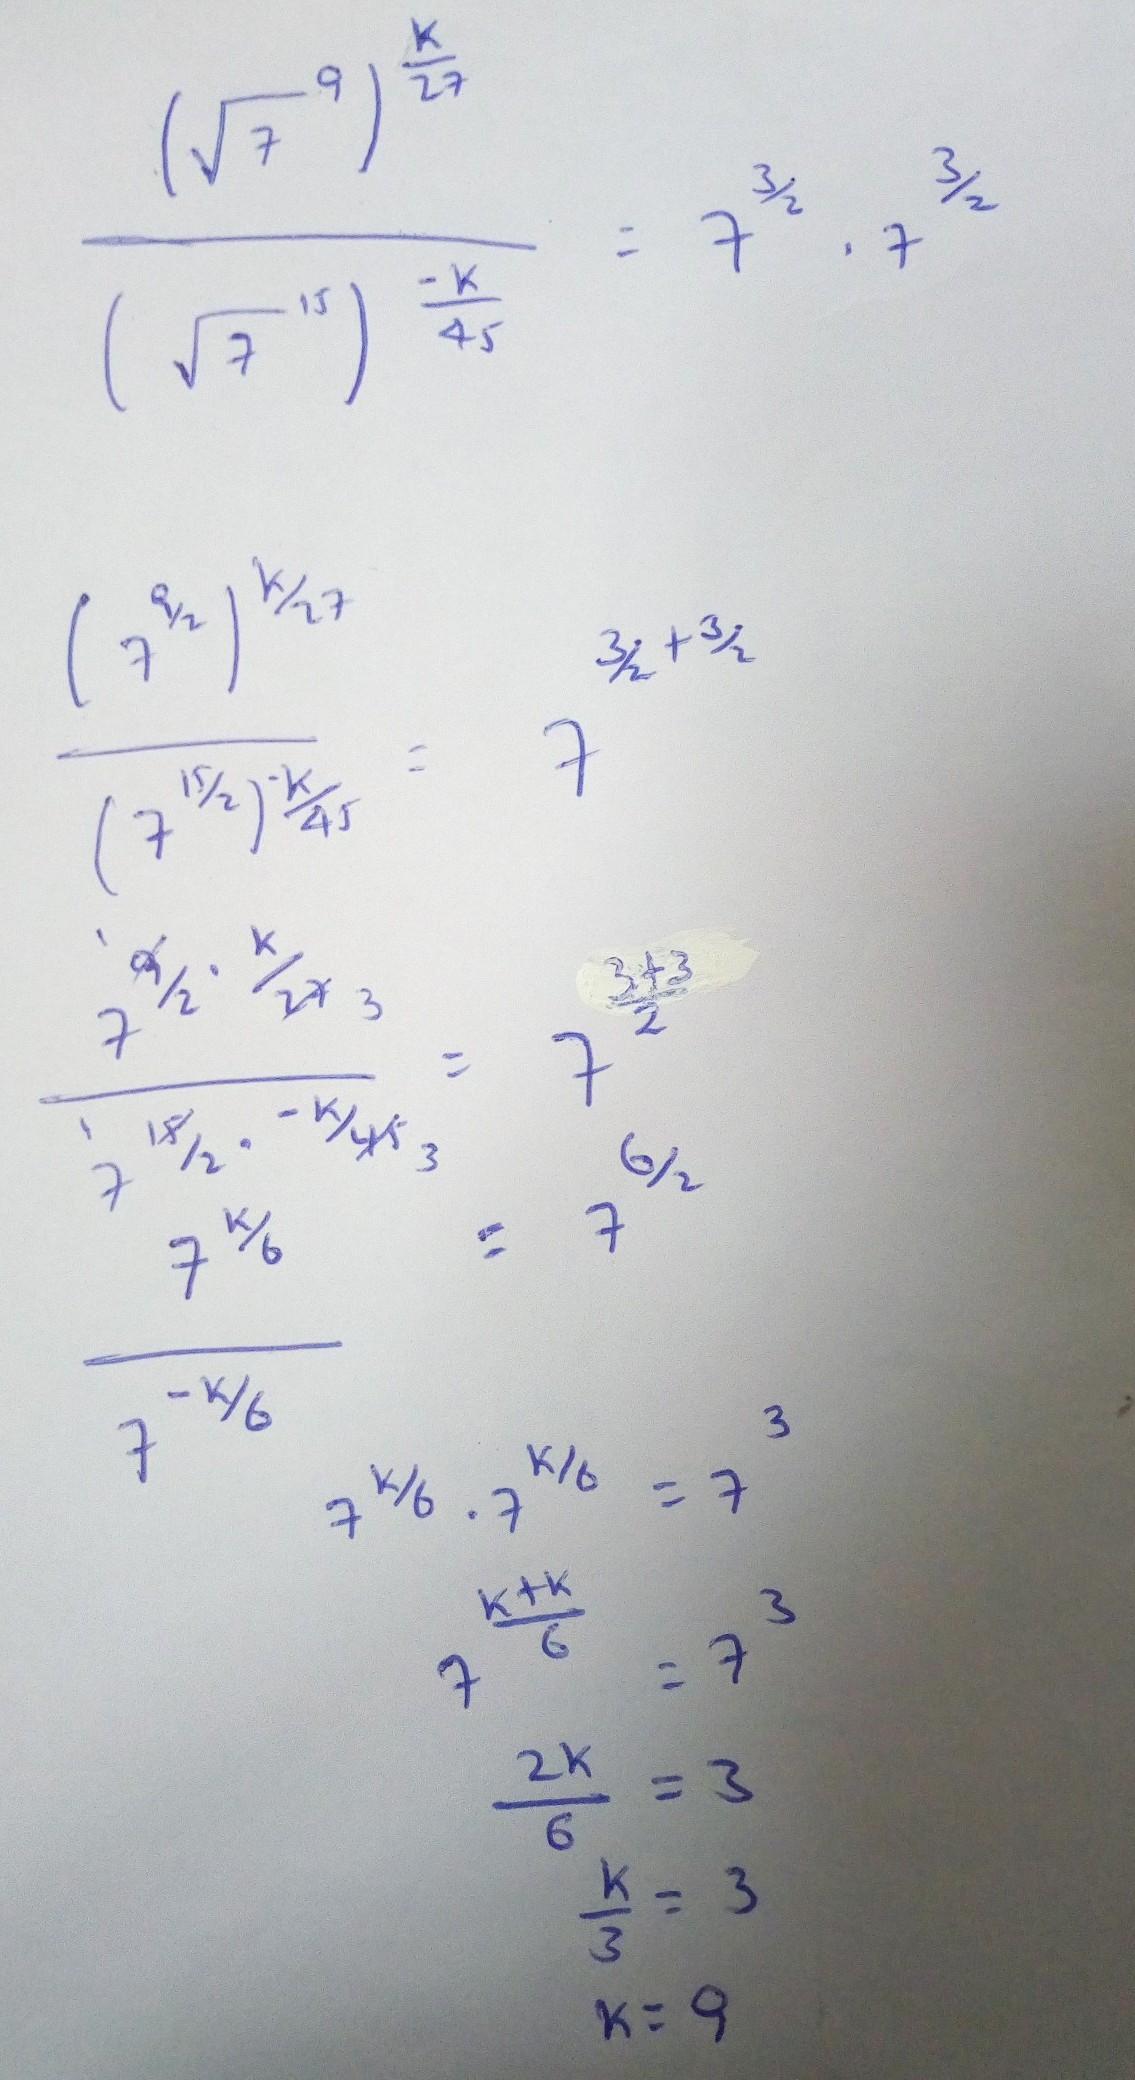 (√7⁹)^(K/27) / (√7¹⁵)^(-K/45) = 7^(3/2) · 7^(3/2)
(7^(9/2))^(K/27) / (7^(15/2))^(-K/45) = 7^(3/2+3/2)
7^(9/2 · K/27 3) / 7^(15/2 · -K/45 3) = 7^((3+3)/2)
7^(K/6) / 7^(-K/6) = 7^(6/2)
7^(K/6) · 7^(K/6) = 7³
7^((K+K)/6) = 7³
2K/6 = 3
K/3 = 3
K = 9